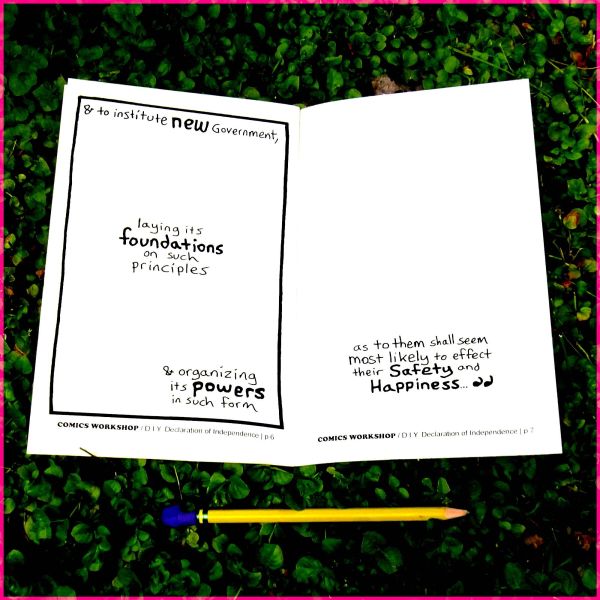 & to institute new Government,
laying its
foundations
on such
principles
& organizing
its powers
in such form
COMICS WORKSHOP / D I Y Declaration of Independence | p.6
as to them shall seem
most likely to effect
their Safety and
Happiness...
COMICS WORKSHOP / D I Y Declaration of Independence | p 7